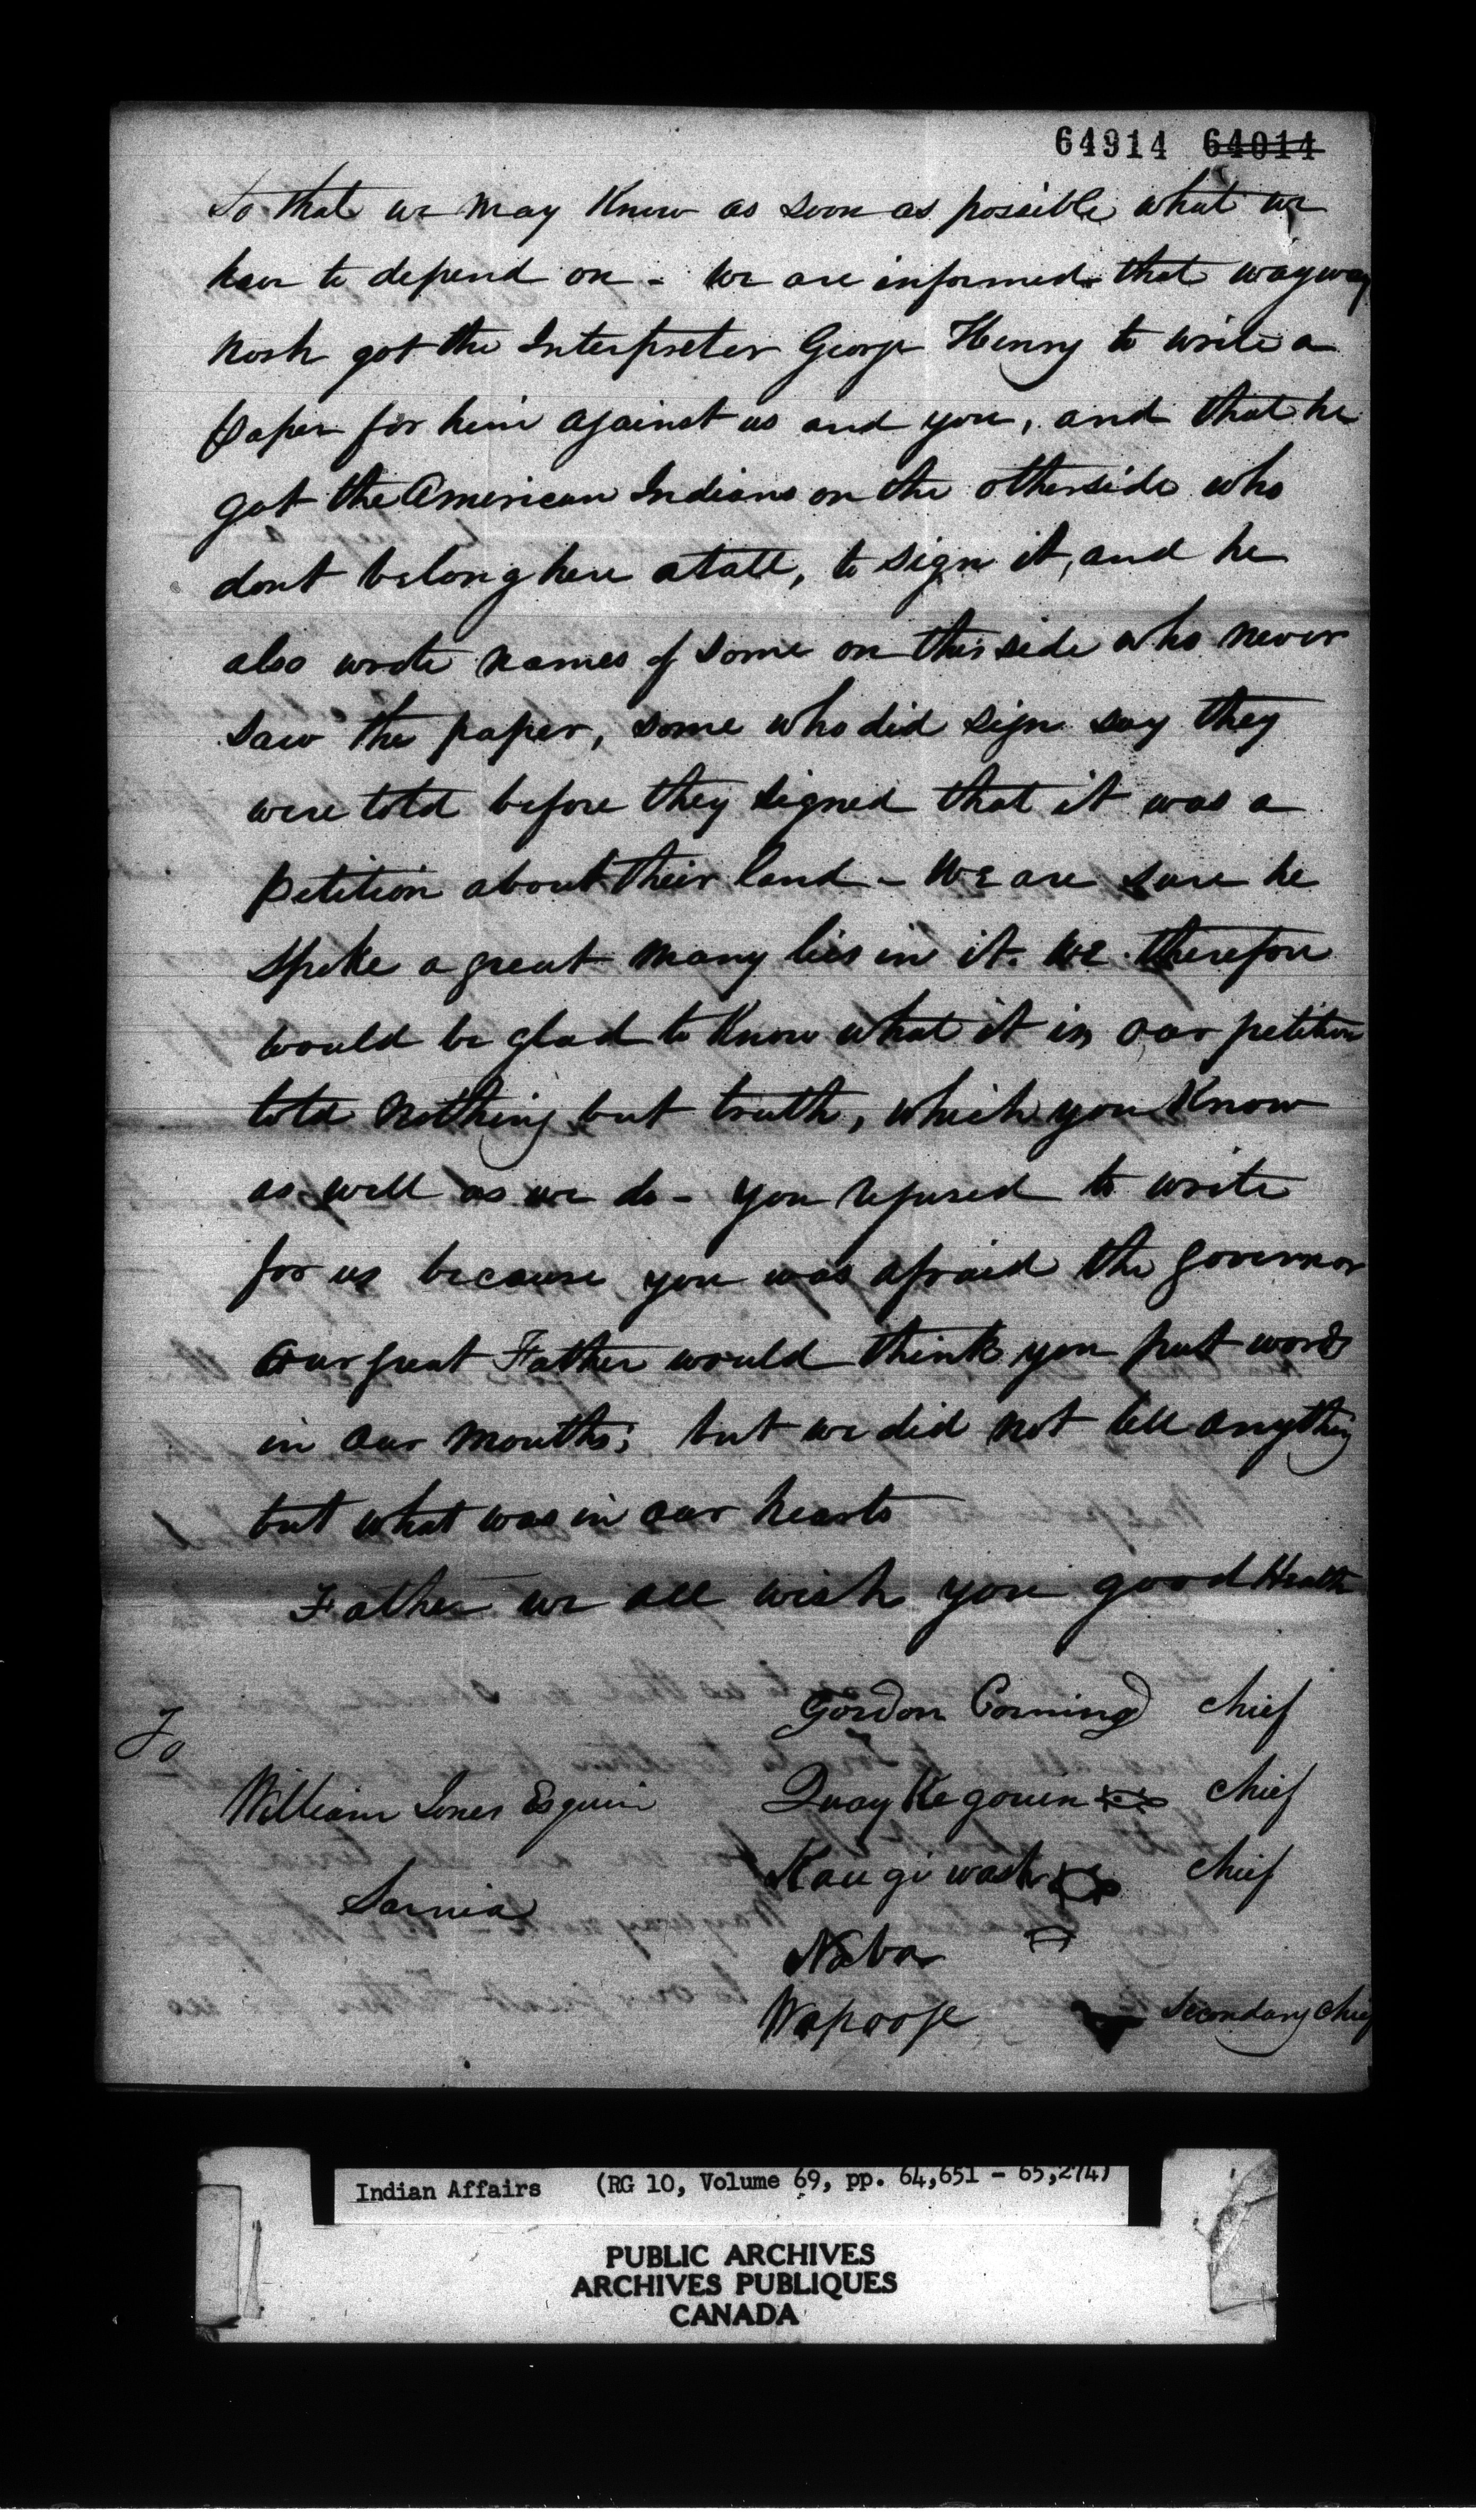 64914 64014
So that we may Know as soon as possible what we
have to depend on - We are informed that wayway
nosh got the Interpreter George Henry to write a
paper for him against us and you, and that he
got the American Indians on the otherside who
dont belong here atall, to sign it, and he
also wrote names of some on this side who never
saw the paper, some who did sign say they
were told before they signed that it was a
petition about their land - We are sure he
spoke a great many lies in it. We therefore
would be glad to Know what it is our petition
told nothing but truth, which you Know
as well as we do - you refused to write
for us because you was afraid the governor
our great Father would think you put words
in our mouths; but we did not tell anything
but what was in our hearts
Father we all wish you good Health
Gordon Corning chief
To
William Jones Esquire
Quay Ke gouen chief
Kau gi wash chief
Sarnia
Naba
Wapoose Secondary chief
Indian Affairs (RG 10, Volume 69, pp. 64,651 - 65,274)
PUBLIC ARCHIVES
ARCHIVES PUBLIQUES
CANADA